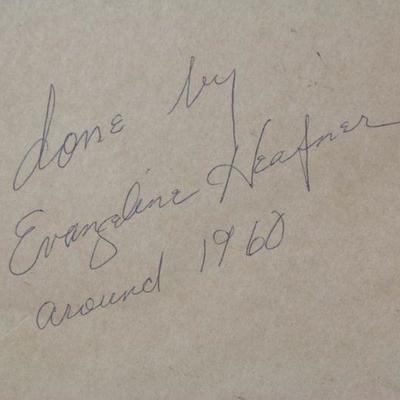 done by
Evangeline Heafner
around 1960